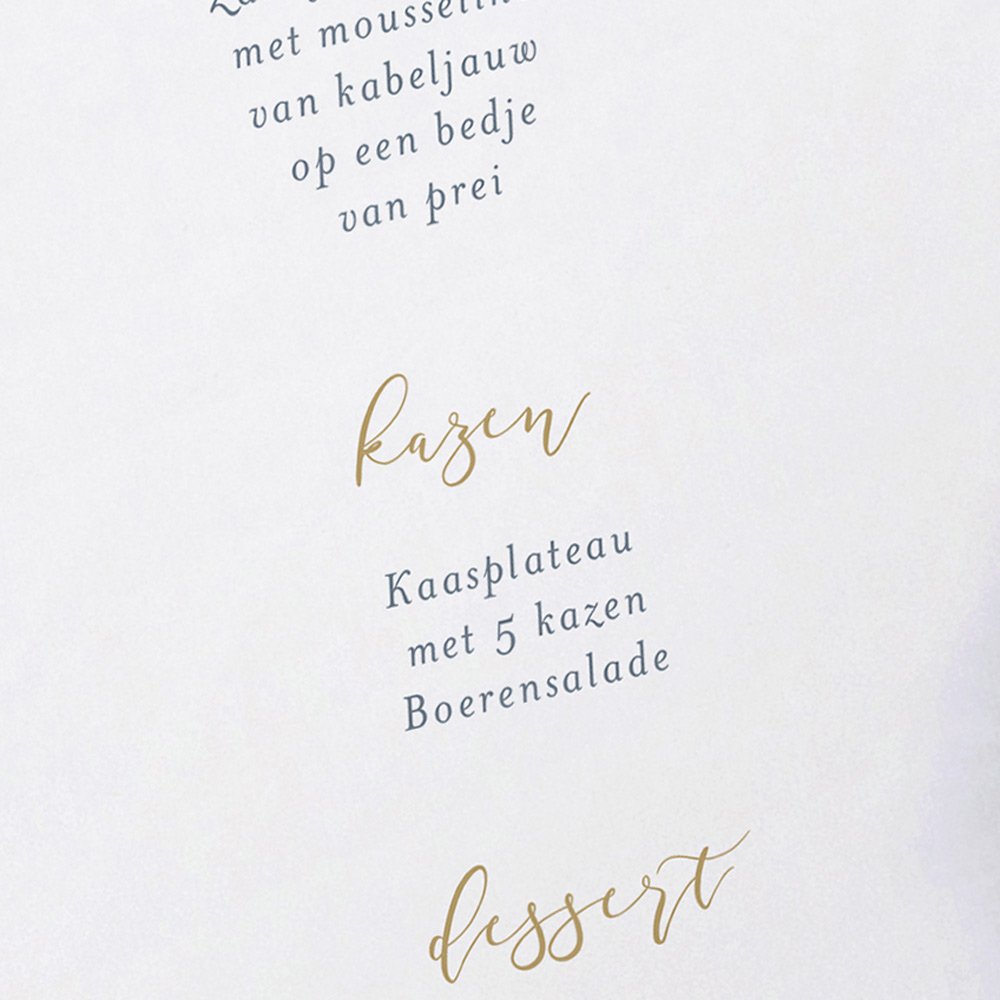 met
van kabeljauw
op een bedje
van prei
kazen
Kaasplateau
met 5 kazen
Boerensalade
dessert